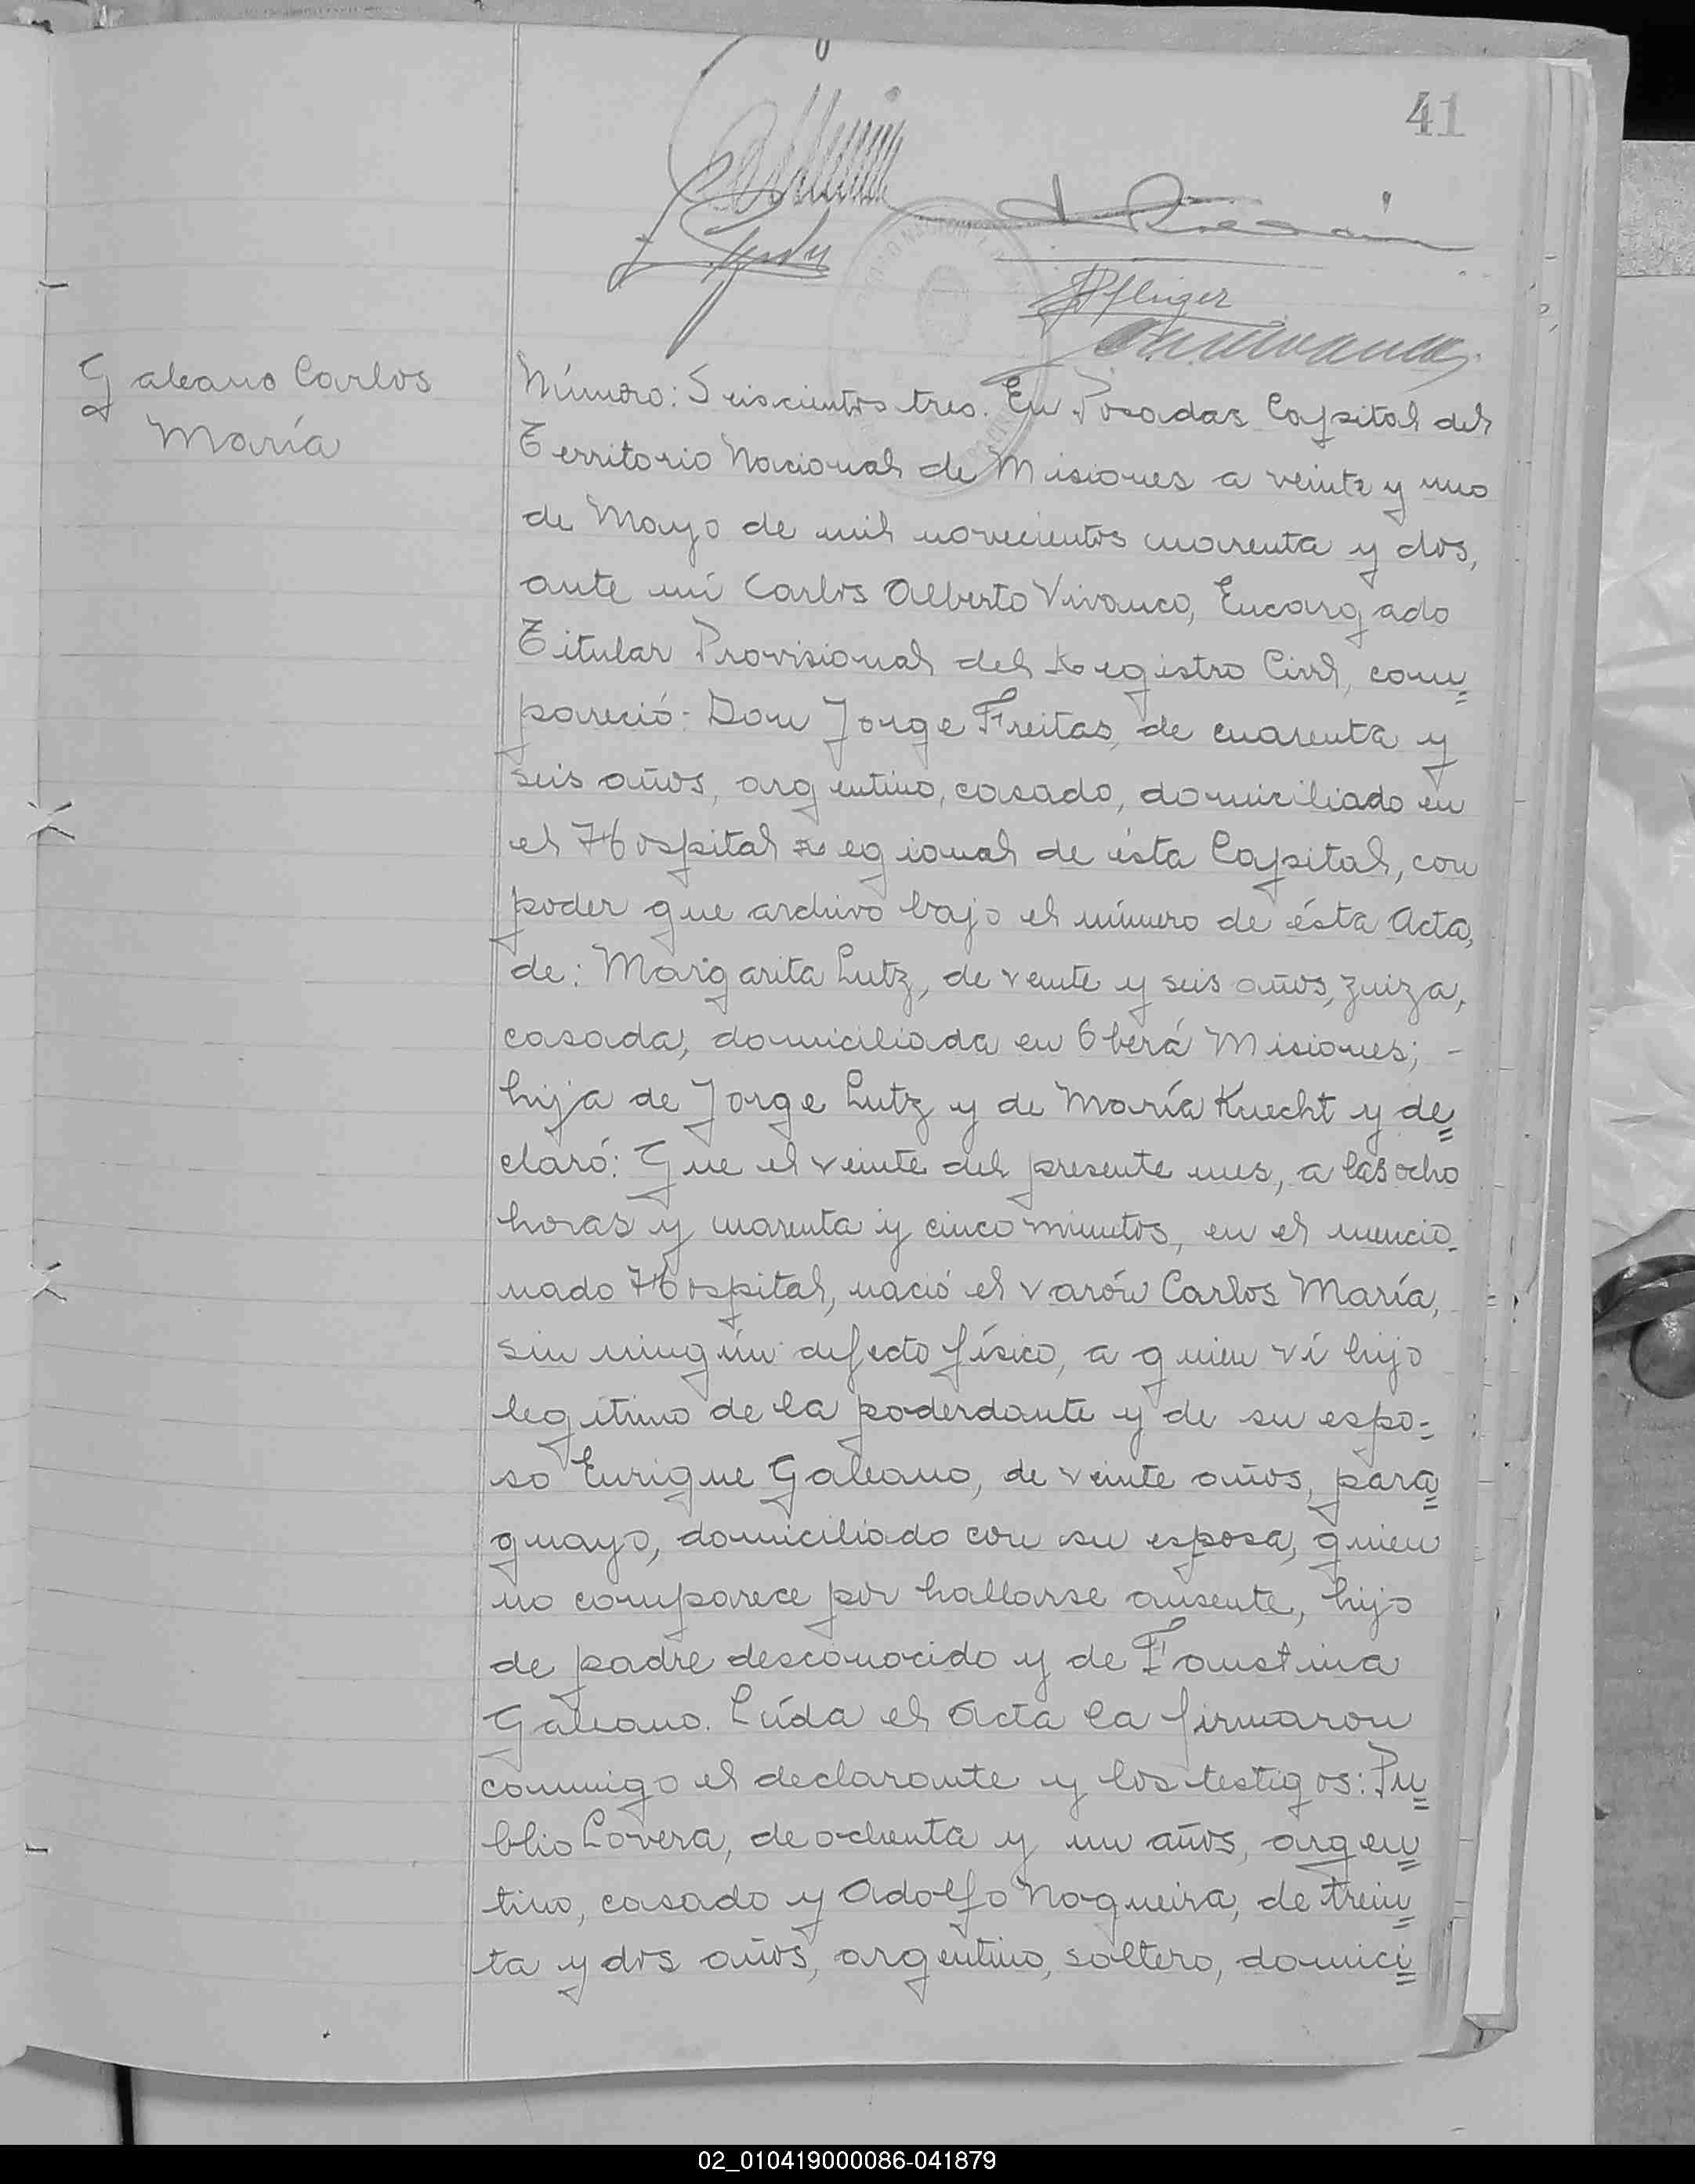 41
Pfluger
Galeano Carlos
María
Número: Seiscientos tres. En Posadas Capital del
Territorio Nacional de Misiones a veinte y uno
de Mayo de mil novecientos cuarenta y dos,
ante mí Carlos Alberto Vivanco, Encargado
Titular Provisional del Registro Civil, com=
pareció: Don Jorge Freitas, de cuarenta y
seis años, argentino, casado, domiciliado en
el Hospital Regional de ésta Capital, con
poder que archivo bajo el número de ésta Acta,
de: Margarita Lutz, de veinte y seis años, zuiza,
casada, domiciliada en Oberá Misiones; -
hija de Jorge Lutz y de María Knecht y de=
claró: Que el veinte del presente mes, a las ocho
horas y cuarenta y cinco minutos, en el mencio-
nado Hospital, nació el varón Carlos María,
sin ningún defecto físico, a quien ví hijo
legítimo de la poderdante y de su espo=
so Enrique Galeano, de veinte años, para=
guayo, domiciliado con su esposa, quien
no comparece por hallarse ausente, hijo
de padre desconocido y de Faustina
Galeano. Leída el Acta la firmaron
conmigo el declarante y los testigos: Pu=
blio Lovera, de ochenta y un años, argen=
tino, casado y Adolfo Nogueira, de trein=
ta y dos años, argentino, soltero, domici=
02_010419000086-041879